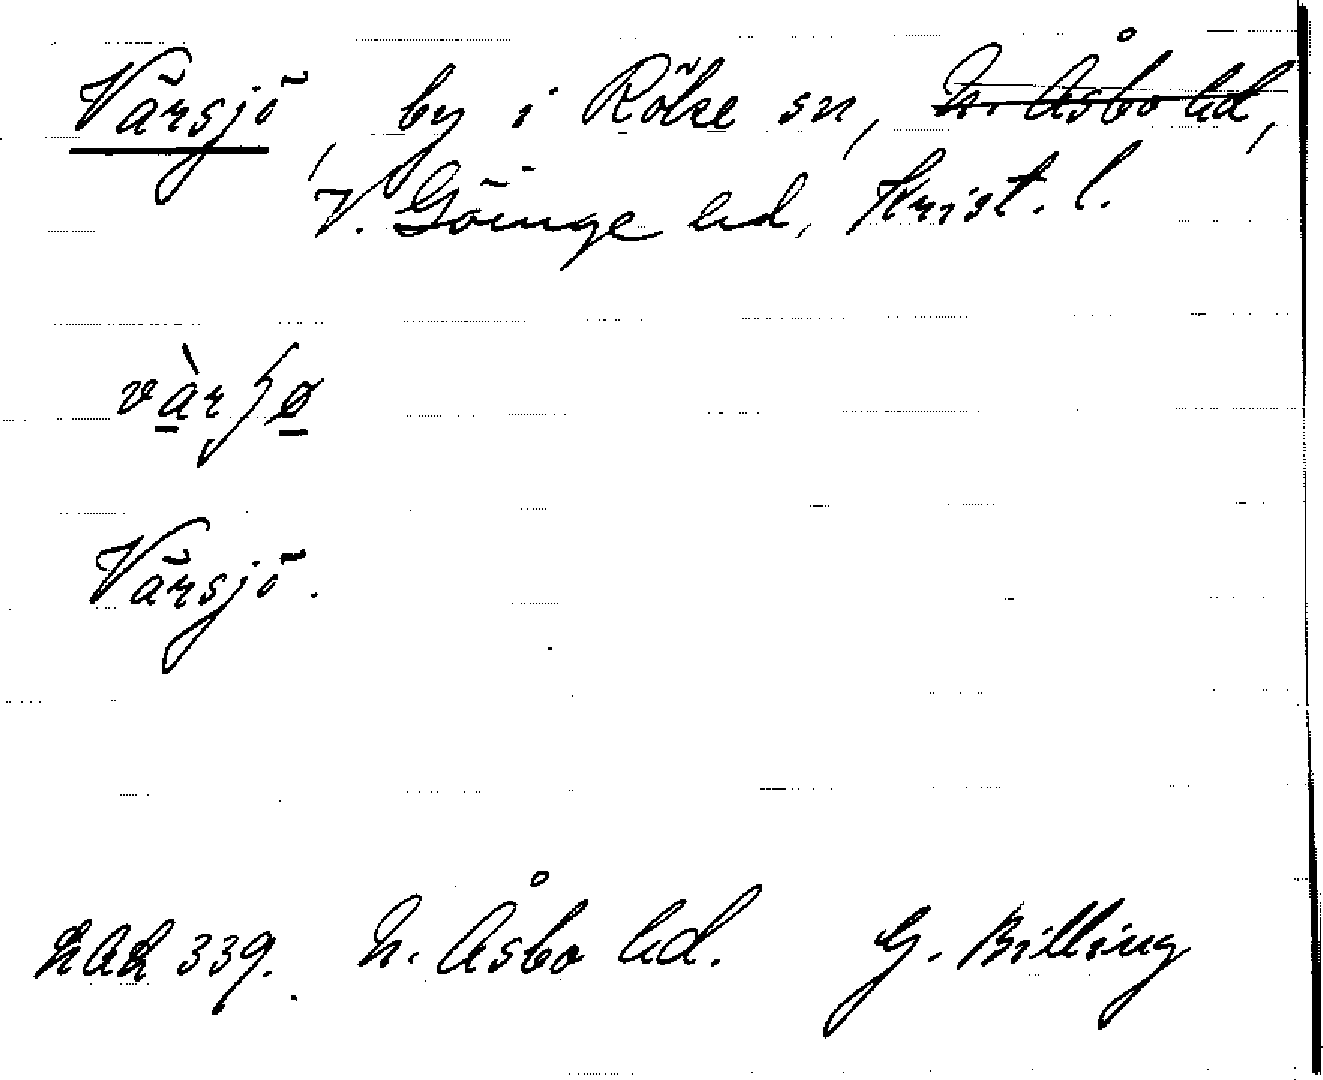 Värsjö, by i Röke sn, N. Åsbo hd,
V. Göinge hd, Krist. l.
Värsjö.
LAL 339. N. Åsbo hd. G. Billing